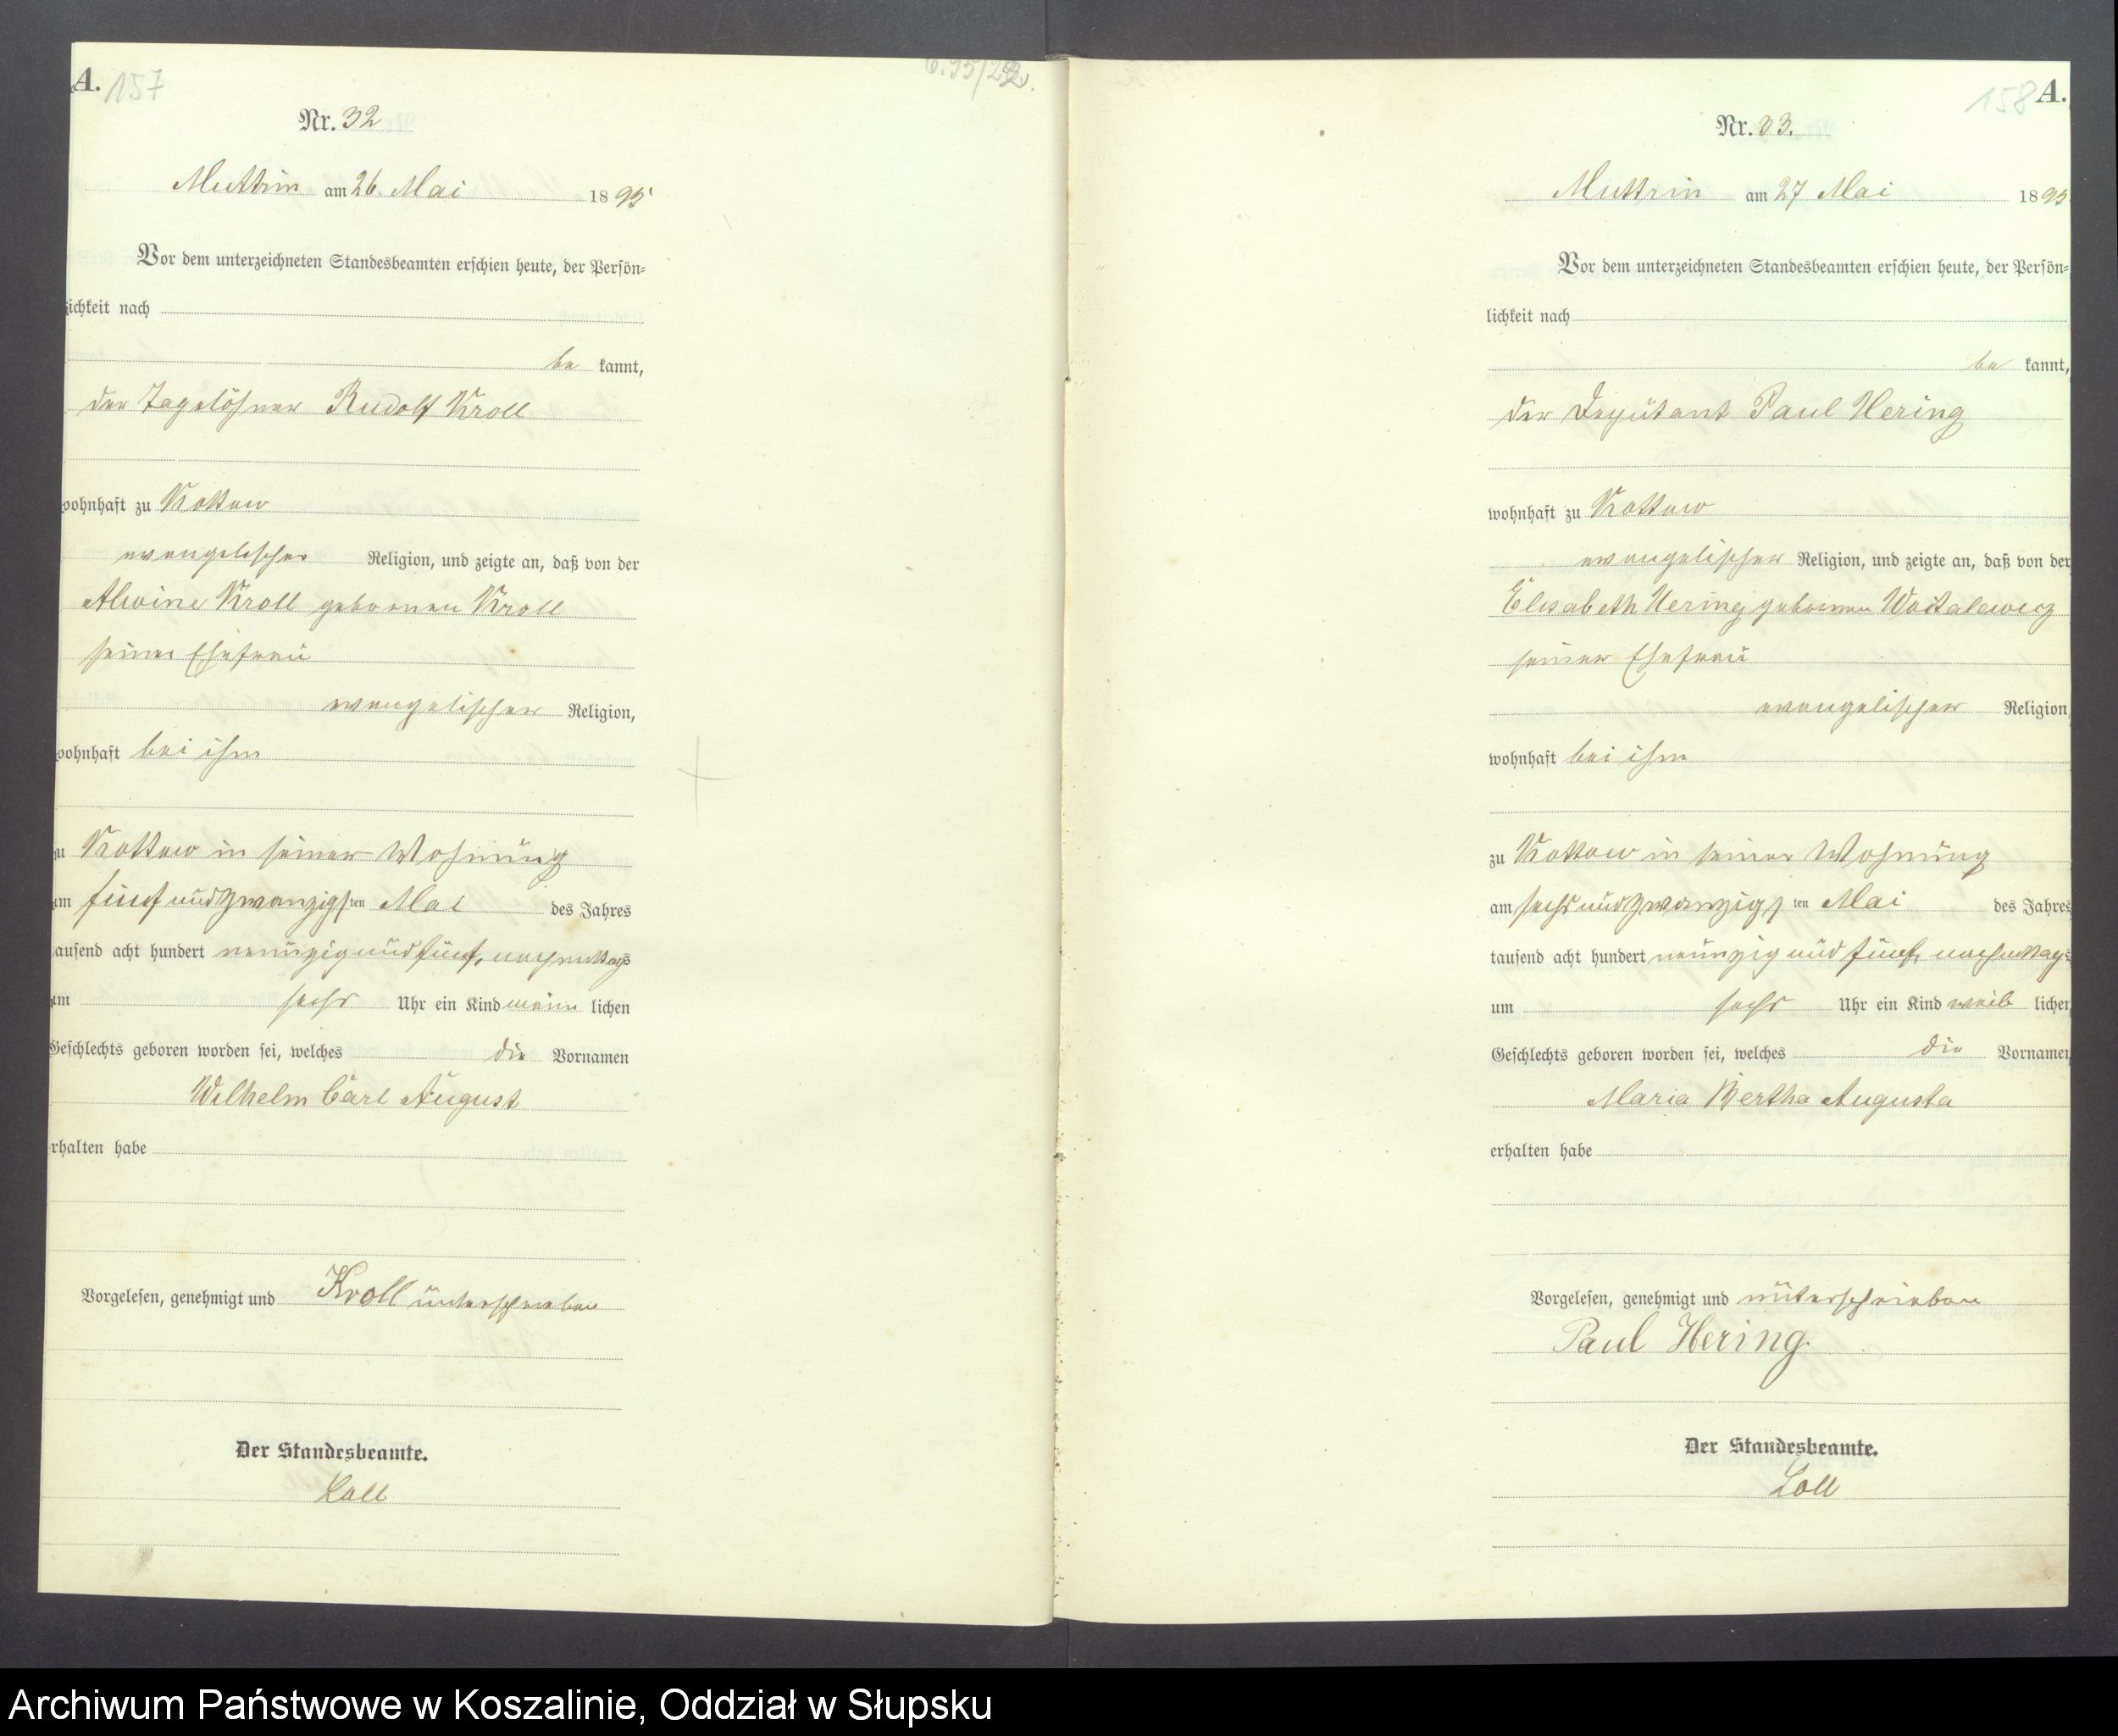 A. 157
Nr. 32
Muttrin am 26. Mai 1895
Vor dem unterzeichneten Standesbeamten erschien heute, der Persön=
lichkeit nach
be kannt,
der Tagelöhner Rudolf Kroll
wohnhaft zu Kottow
evangelischer Religion, und zeigte an, daß von der
Alwine Kroll geborenen Kroll
seiner Ehefrau
evangelischer Religion,
wohnhaft bei ihm
zu Kottow in seiner Wohnung
am fünf und zwanzigsten Mai des Jahres
tausend acht hundert neunzig und fünf, nachmittags
um sechs Uhr ein Kind männ lichen
Geschlechts geboren worden sei, welches die Vornamen
Wilhelm Carl August
erhalten habe
Vorgelesen, genehmigt und Kroll unterschrieben
Der Standesbeamte.
Loll
158 A.
Nr. 33.
Muttrin am 27 Mai 1895
Vor dem unterzeichneten Standesbeamten erschien heute, der Persön=
lichkeit nach
be kannt,
der Deputant Paul Hering
wohnhaft zu Kottow
evangelischer Religion, und zeigte an, daß von der
Elisabeth Hering geborenen
seiner Ehefrau
evangelischer Religion,
wohnhaft bei ihm
zu Kottow in seiner Wohnung
am sechs und zwanzigsten Mai des Jahres
tausend acht hundert neunzig und fünf, nachmittags
um sechs Uhr ein Kind weib lichen
Geschlechts geboren worden sei, welches die Vornamen
Maria Bertha Augusta
erhalten habe
Vorgelesen, genehmigt und unterschrieben
Paul Hering.
Der Standesbeamte.
Loll
Archiwum Państwowe w Koszalinie, Oddział w Słupsku